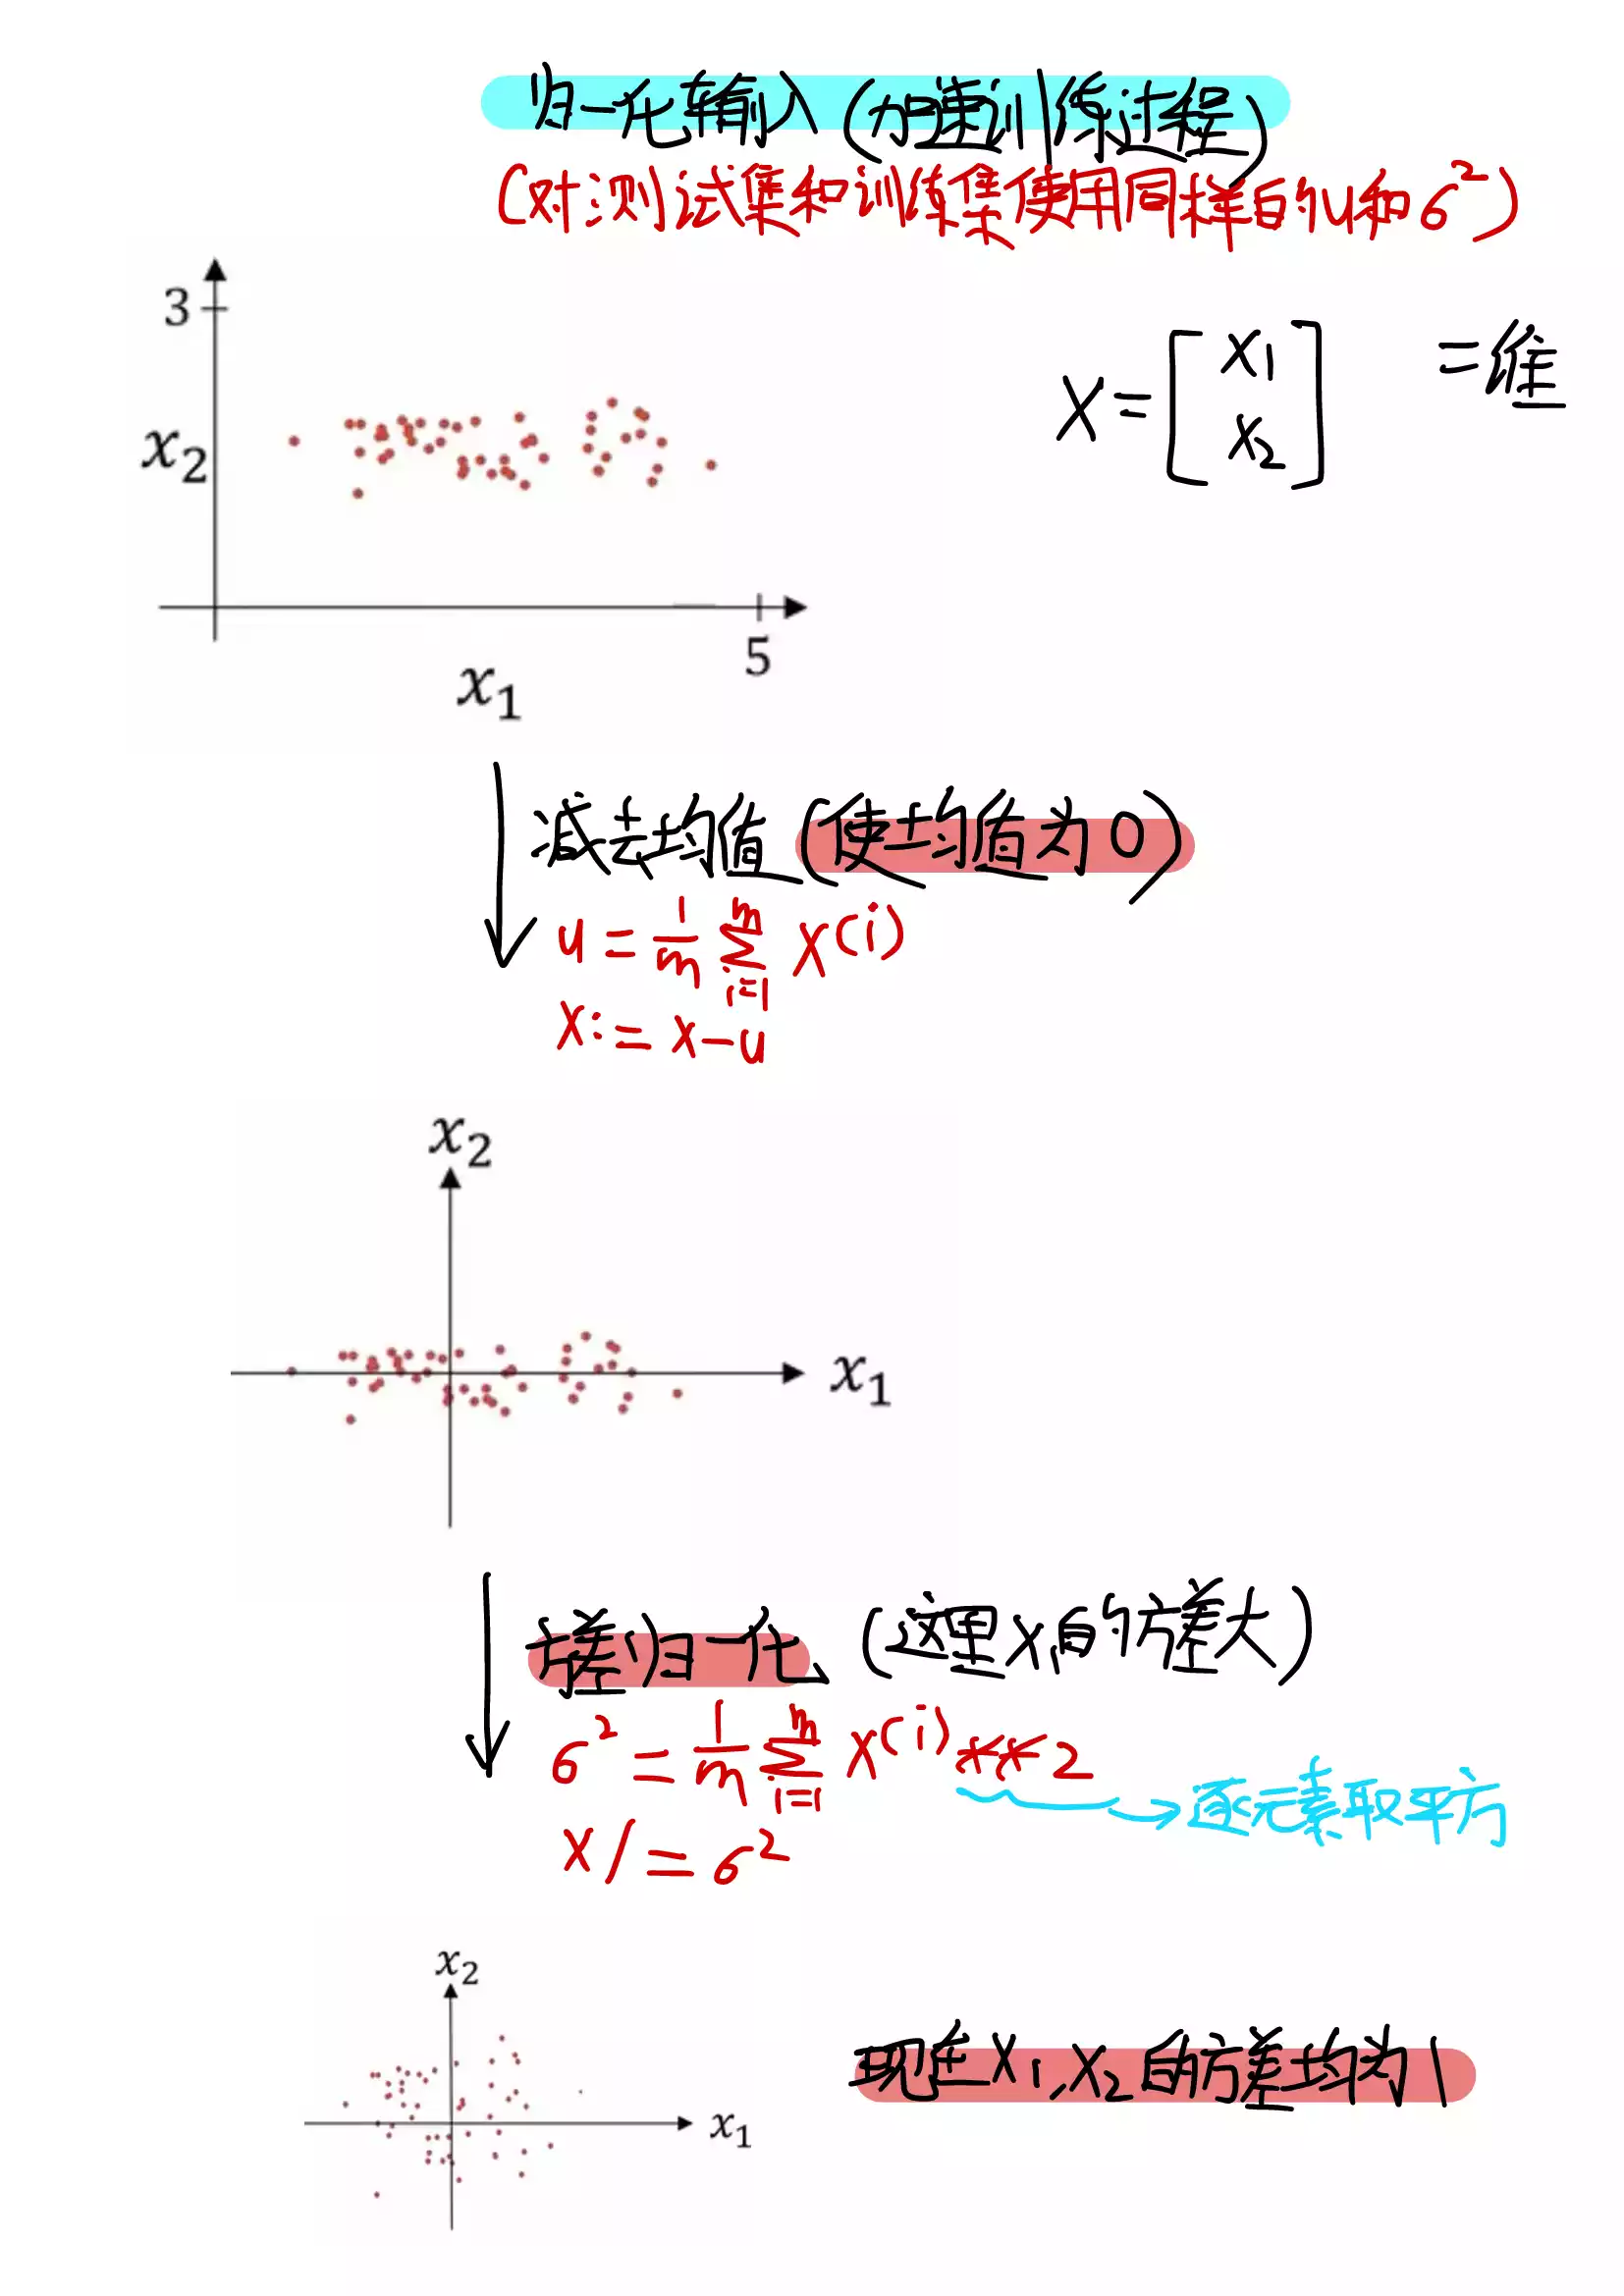 归一化输入(加速训练过程)
(对测试集和训练集使用同样的u和σ²)
3
x₂
5
x₁
X=[x₁
x₂]
二维
减去均值(使均值为0)
u = 1/m Σ_{i=1}^{m} x^(i)
x := x-u
x₂
x₁
方差归一化 (这里x₁的方差大)
σ² = 1/m Σ_{i=1}^{m} x^(i)**2
逐元素取平方
x /= σ²
x₂
x₁
现在x₁,x₂的方差均为1